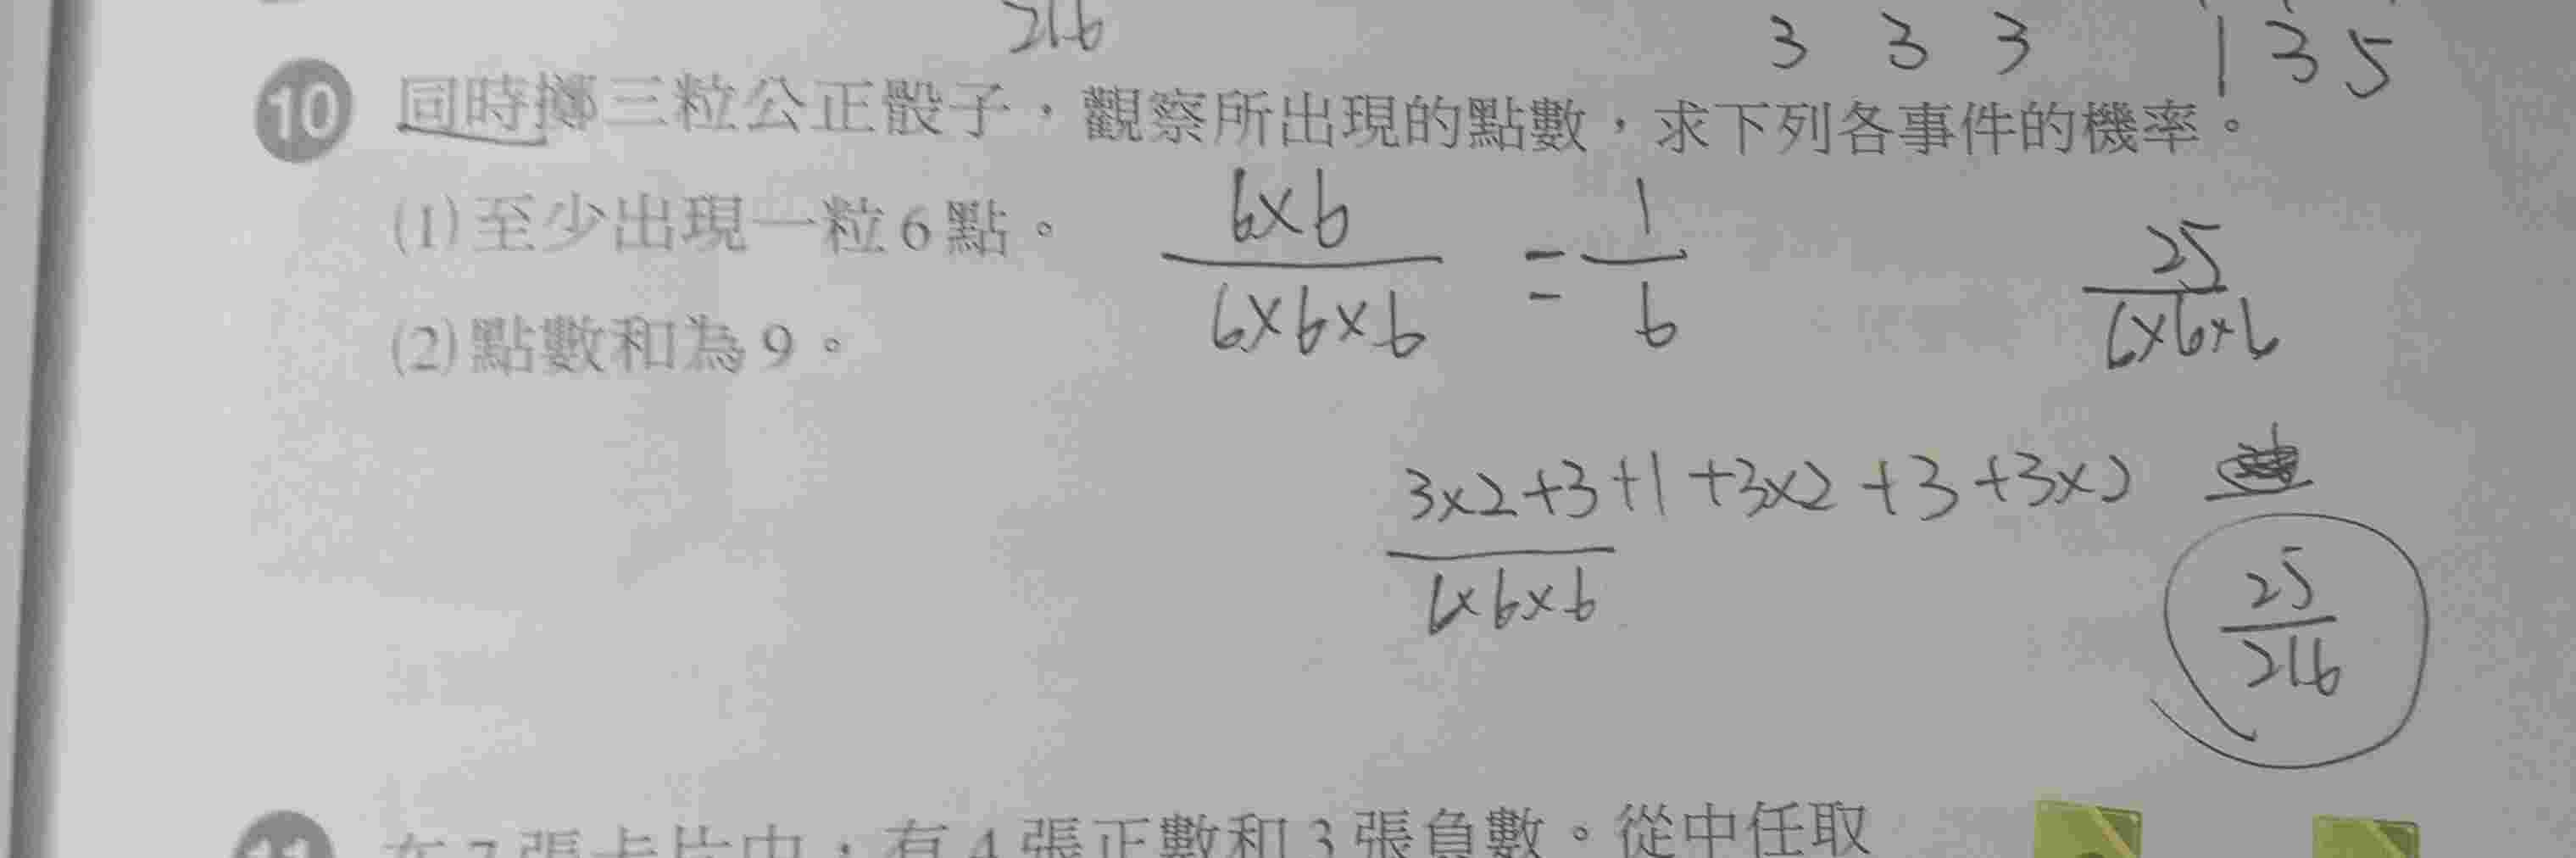 216
3 3 3 1 3 5
10 同時擲三粒公正骰子，觀察所出現的點數，求下列各事件的機率。
(1) 至少出現一粒6點。
6×6
6×6×6
= 1
6
25
6×6×6
(2) 點數和為9。
3×2+3+1+3×2+3+3×2
6×6×6
25
216
張卡片中，有4張正數和3張負數。從中任取